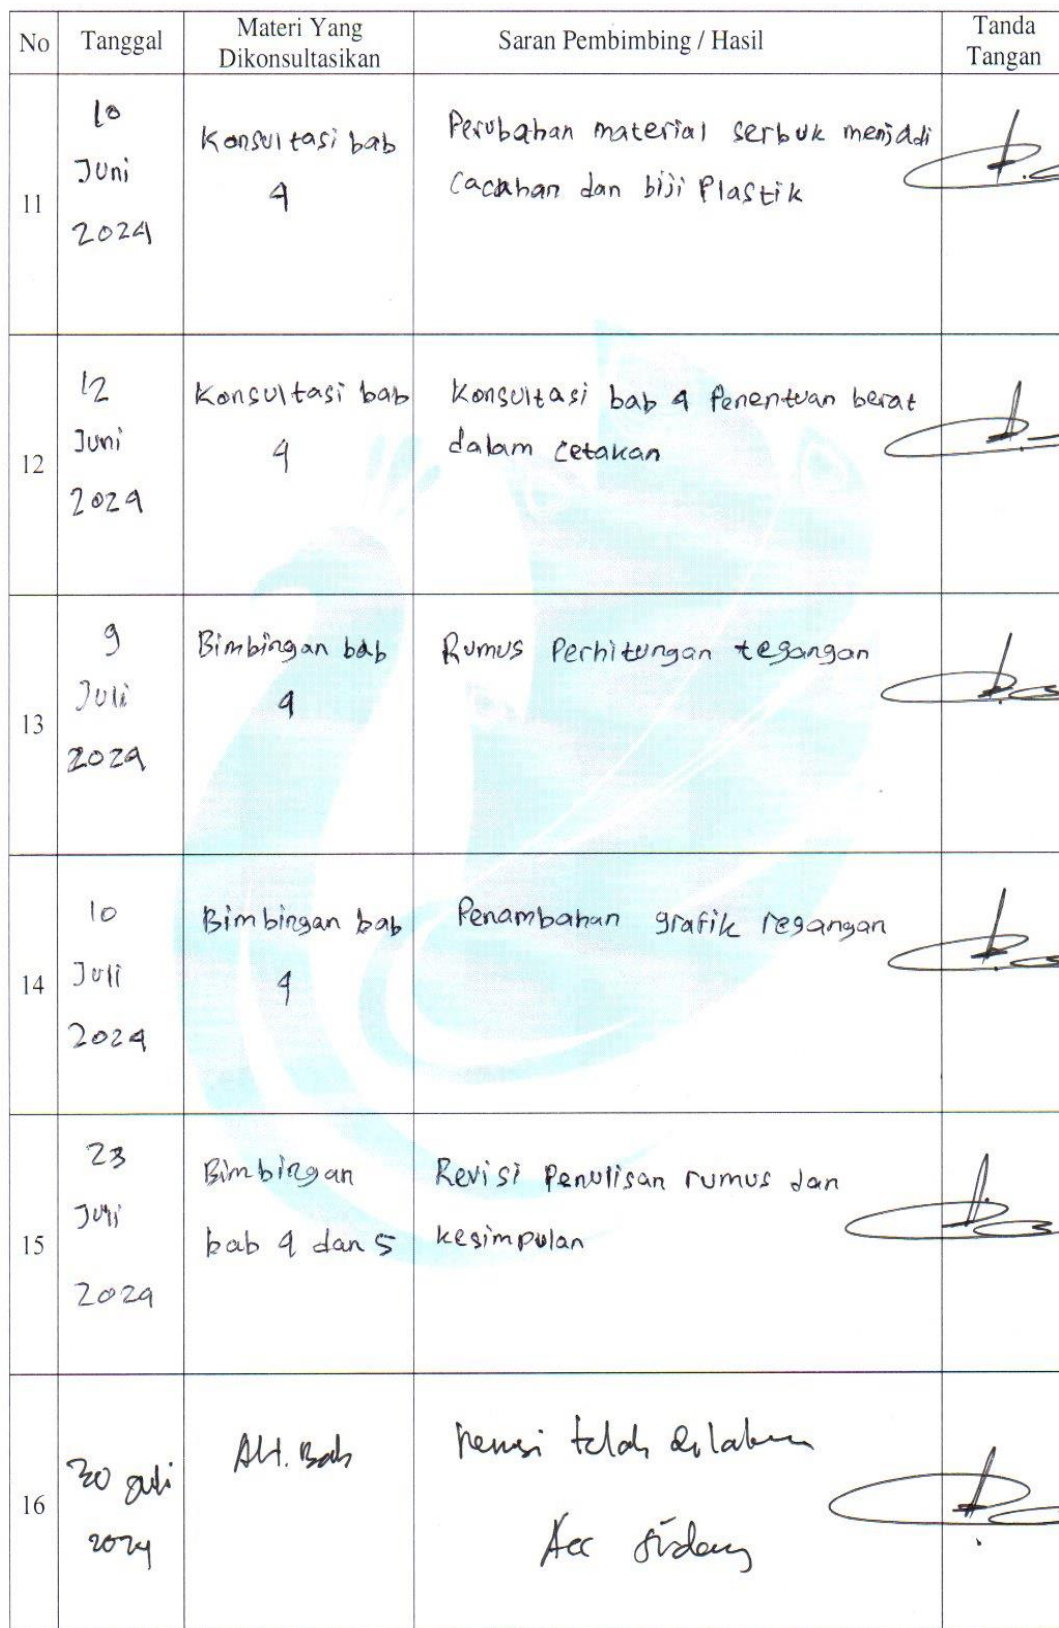 No Tanggal Materi Yang Dikonsultasikan Saran Pembimbing / Hasil Tanda Tangan
11
10
Juni
2024
Konsultasi bab
4
Perubahan material serbuk menjadi
Cacahan dan biji Plastik
12
12
Juni
2024
Konsultasi bab
4
Konsultasi bab 4 Penentuan berat
dalam cetakan
13
9
Juli
2024
Bimbingan bab
4
Rumus Perhitungan tegangan
14
10
Juli
2024
Bimbingan bab
4
Penambahan grafik regangan
15
23
Juli
2024
Bimbingan
bab 4 dan 5
Revisi Penulisan rumus dan
kesimpulan
16
30 Juli
2024
Bab
revisi telah
Acc sidang